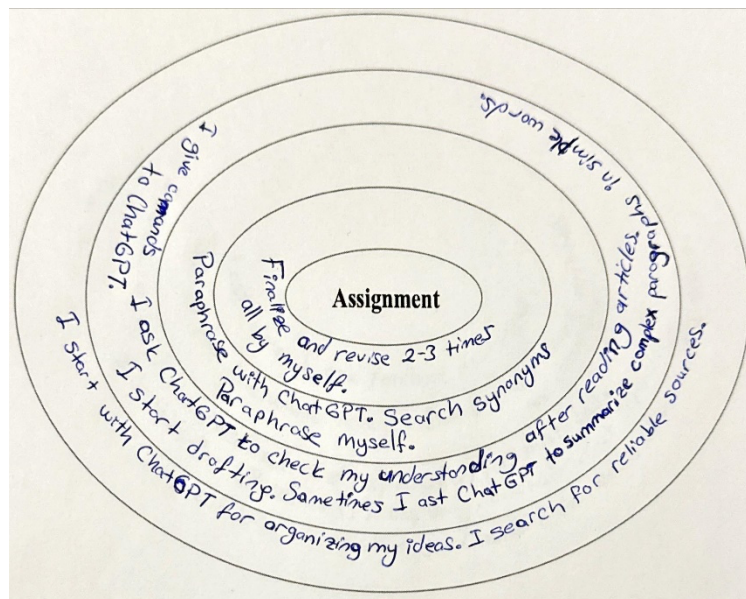 Assignment
Finalize and revise 2-3 times
all by myself.
Paraphrase with ChatGPT. Search synonyms
Paraphrase myself.
I give comands
to ChatGPT. I ask ChatGPT to check my understanding after reading articles.
I start drafting. Sametimes I ast ChatGPT to summarize complex paragraphs in simple words.
I start with ChatGPT for organizing my ideas. I search for reliable sources.